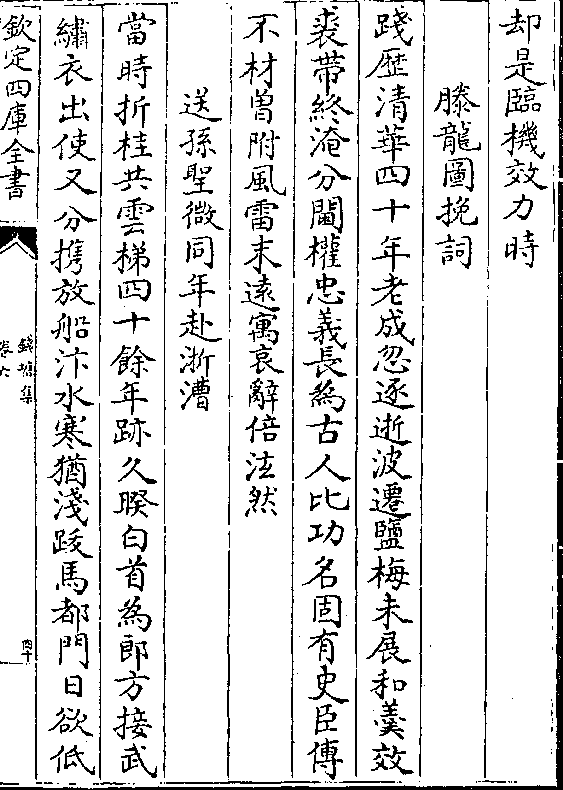 却是臨機效力時
滕龍圖挽詞
踐歴清華四十年老成忽逐逝波遷鹽梅未展和羹效
裘帶終淹分閫權忠義長為古人比功名固有史臣傳
不材曽附風雷末遠寓哀辭倍泫然
送孫聖微同年赴浙漕
當時折桂共雲梯四十餘年跡久暌白首為郎方接武
繡衣出使又分攜放船汴水寒猶淺跋馬都門日欲低
欽定四庫全書
錢塘集
卷六
四十